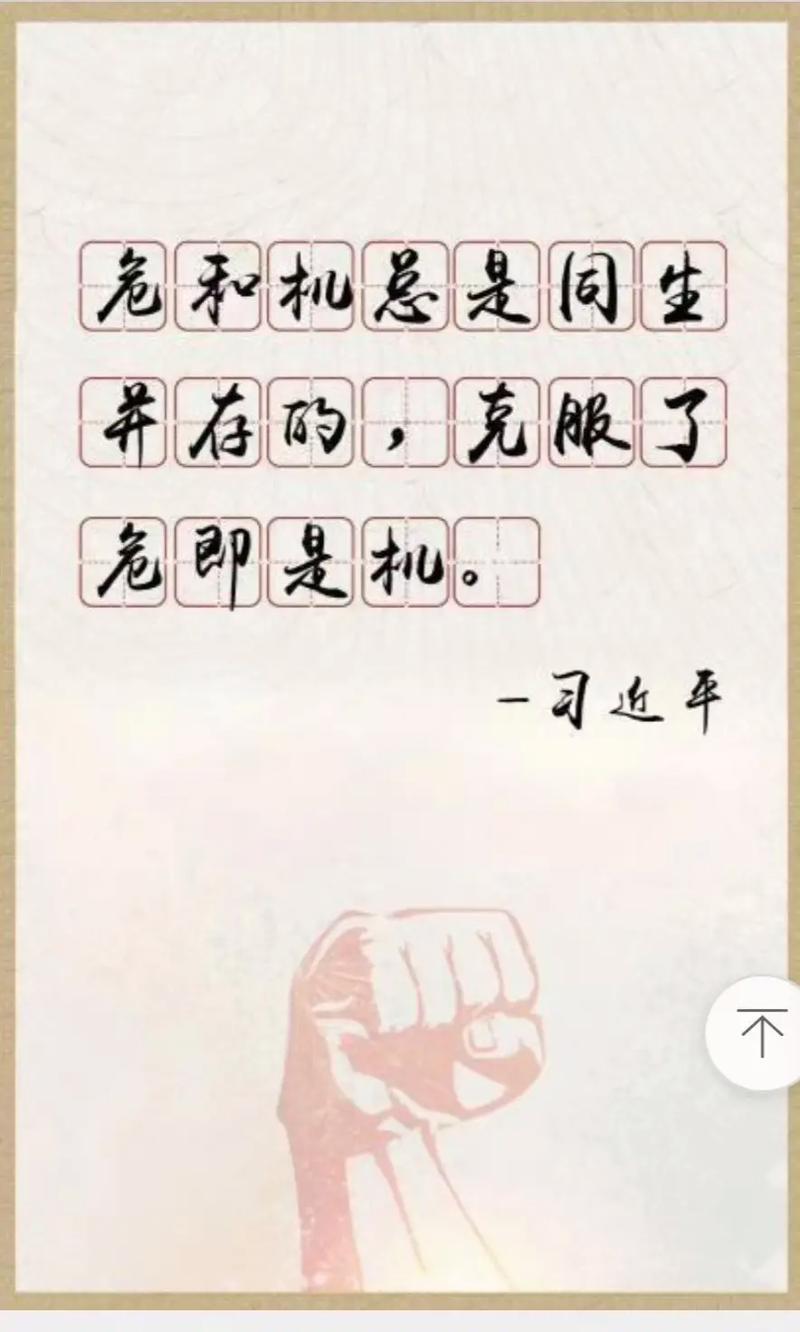 危和机总是同生
并存的，克服了
危即是机。
－习近平